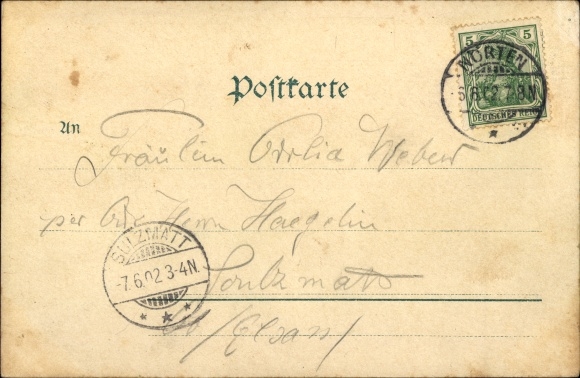 Postkarte
5 5
DEUTSCHES REICH
WÖRTEN
6.6.02.7-8N
An
Fräulein Weber
per Adr. Herrn Haegelin
SULZMATT
-7.6.02.3-4N.
Soulzmatt
(Elsass)